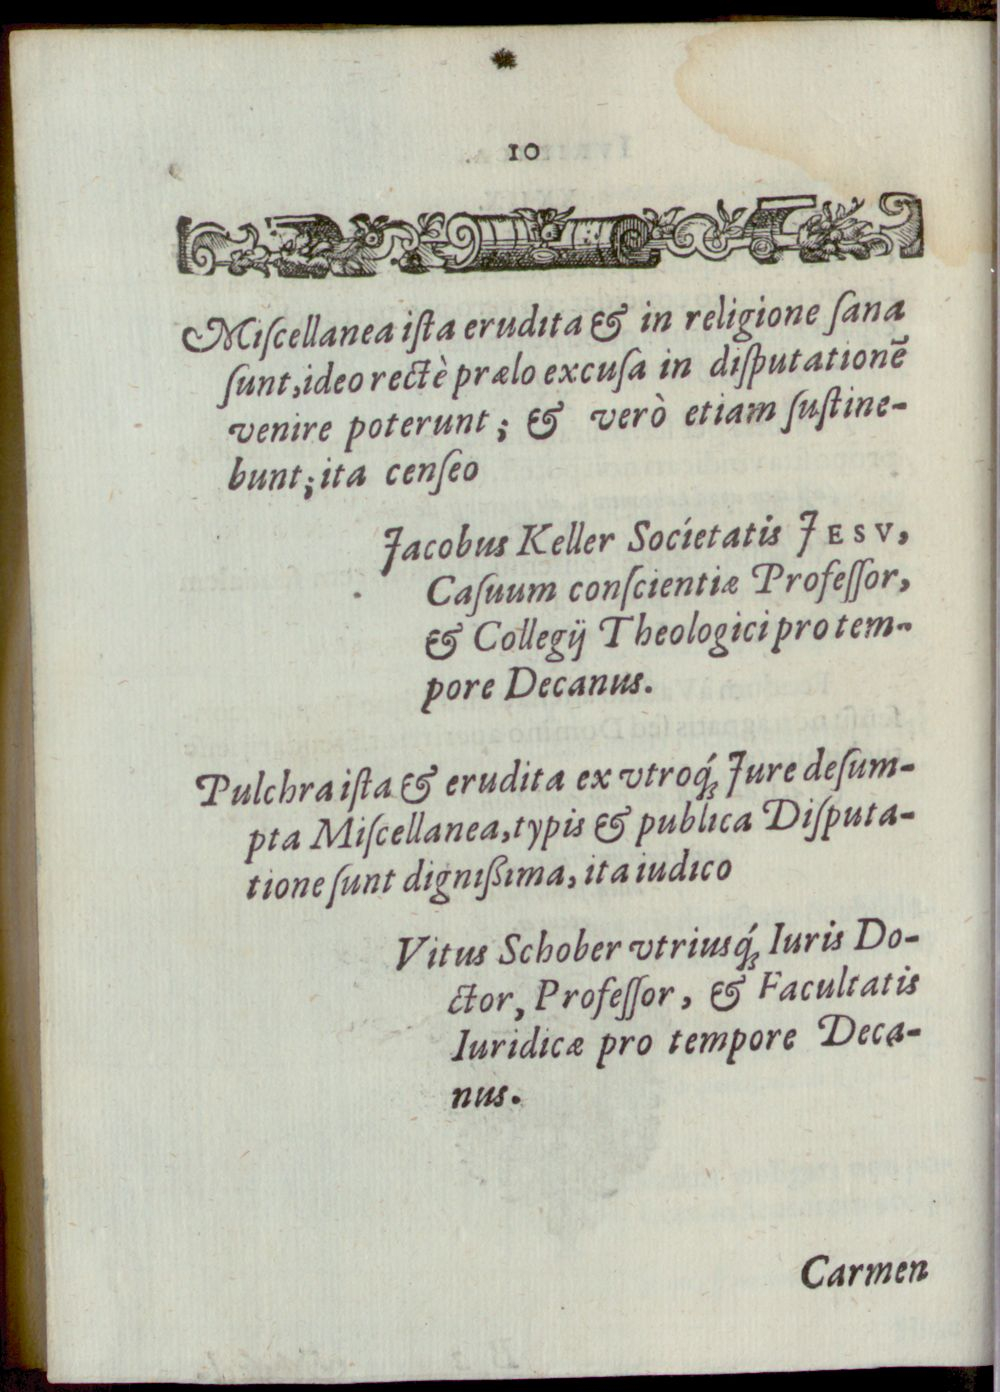 10
Miſcellanea iſta erudita & in religione ſana
ſunt, ideo rectè prælo excuſa in diſputationē
venire poterunt; & verò etiam ſuſtine-
bunt; ita cenſeo
Jacobus Keller Societatis JESV,
Caſuum conſcientiæ Profeſſor,
& Collegij Theologici pro tem-
pore Decanus.
Pulchra iſta & erudita ex vtroq́ꝫ Jure deſum-
pta Miſcellanea, typis & publica Diſputa-
tione ſunt digniſsima, ita iudico
Vitus Schober vtriusq́ꝫ Iuris Do-
ctor, Profeſſor, & Facultatis
Iuridicæ pro tempore Deca-
nus.
Carmen